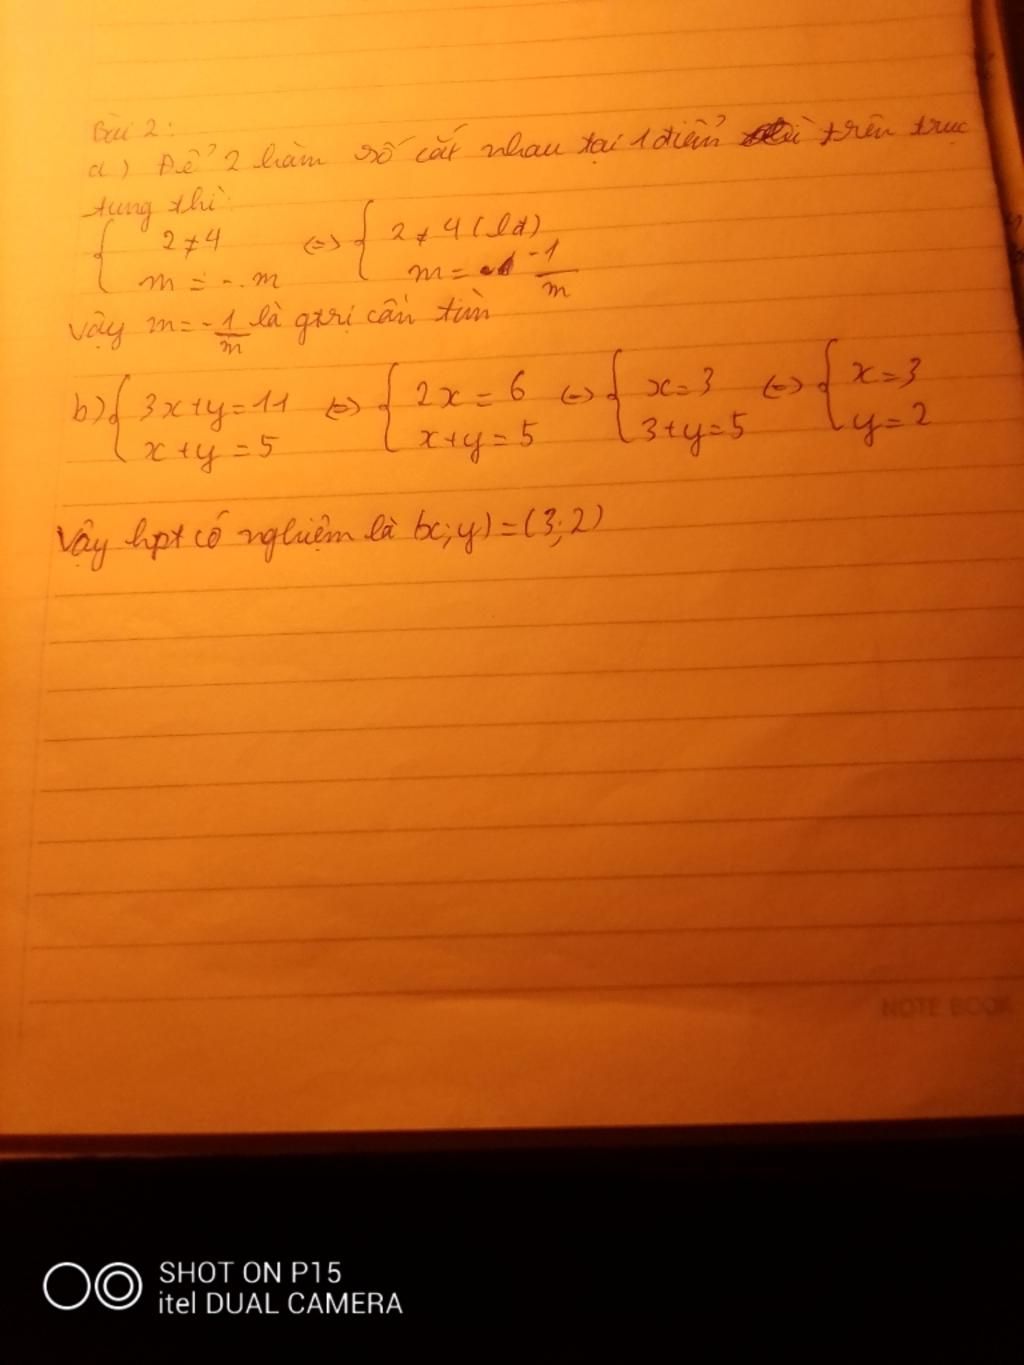 Bài 2:
a) Để 2 hàm số cắt nhau tại 1 điểm trên trục
tung thì:
{ 2 ≠ 4 <=> { 2 ≠ 4 (lđ)
m = -. m m = -1/m
Vậy m = -1/m là gtrị cần tìm
b) { 3x+y=11 <=> { 2x = 6 <=> { x=3 <=> { x=3
x+y=5 x+y=5 3+y=5 y=2
Vậy hpt có nghiệm là (x;y)=(3;2)
NOTE BOOK
SHOT ON P15
itel DUAL CAMERA